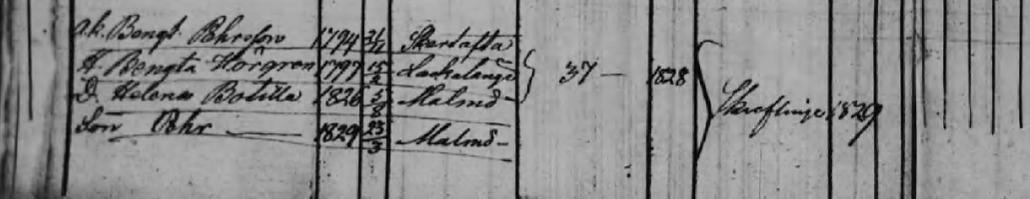 a.k. Bengt Pehrsson 1794 3/12 Skartafta
H. Bengta Hörgren 1797 15/2 Lackalänga 37 — 1828
D. Helena Botilla 1826 5/8 Malmö Skreflinge 1829
Son Pehr — 1829 23/3 Malmö